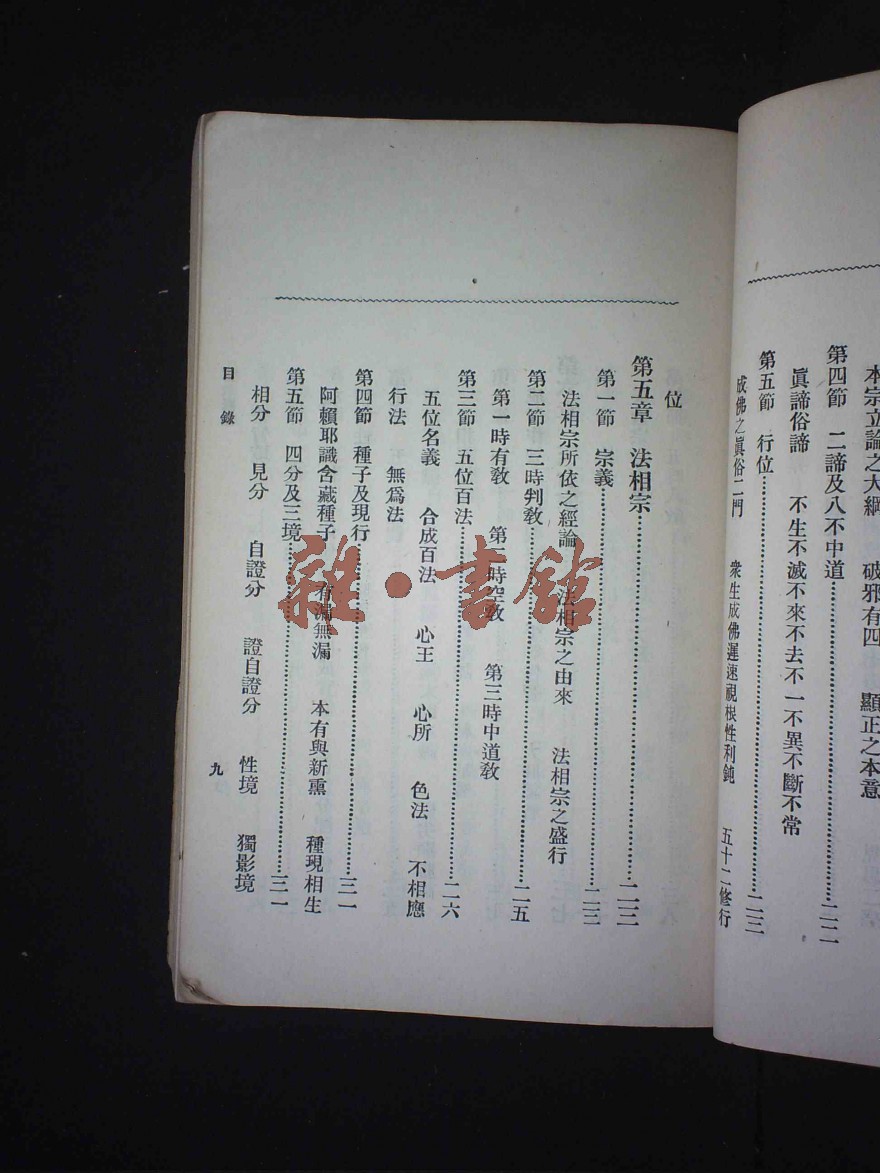 本宗立論之大綱　破邪有四　顯正之本意
第四節　二諦及八不中道……二二
眞諦俗諦　不生不滅不來不去不一不異不斷不常
第五節　行位……二三
成佛之眞俗二門　衆生成佛遲速視根性利鈍　五十二修行
位
第五章　法相宗……二二三
第一節　宗義……二三
法相宗所依之經論　法相宗之由來　法相宗之盛行
第二節　三時判敎……二五
第一時有敎　第二時空敎　第三時中道敎
第三節　五位百法……二六
五位名義　合成百法　心王　心所　色法　不相應
行法　無爲法
第四節　種子及現行……三一
阿賴耶識含藏種子　有漏無漏　本有與新熏　種現相生
第五節　四分及三境……三一
相分　見分　自證分　證自證分　性境　獨影境
目錄
九
雜·書館